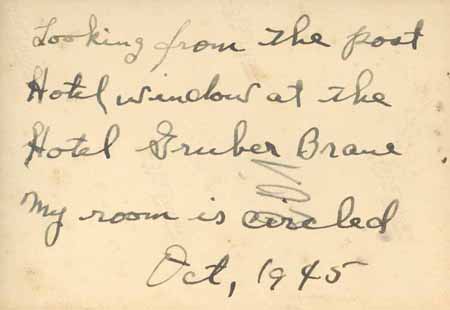 Looking from the post
Hotel window at the
Hotel Gruber Braue
My room is circled
Oct, 1945